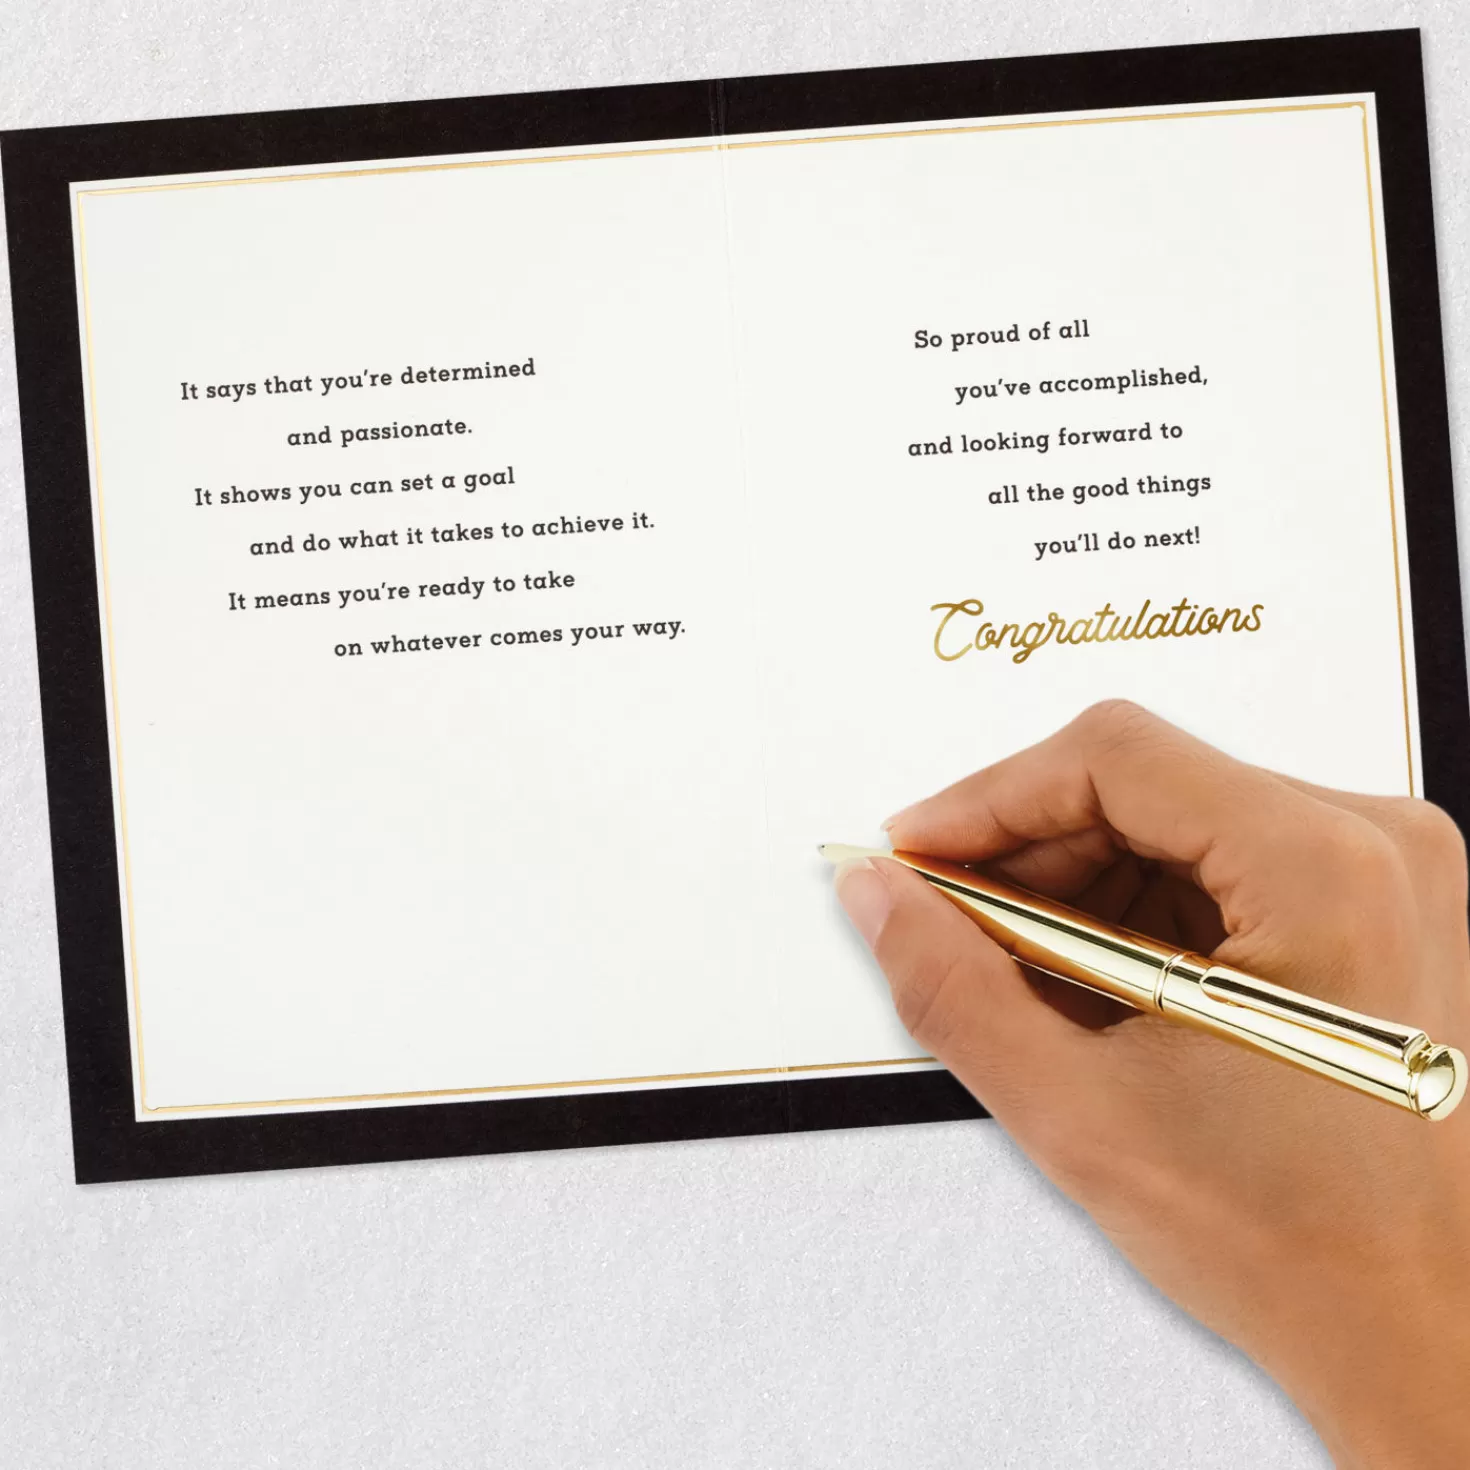 It says that you're determined
and passionate.
It shows you can set a goal
and do what it takes to achieve it.
It means you're ready to take
on whatever comes your way.
So proud of all
you've accomplished,
and looking forward to
all the good things
you'll do next!
Congratulations